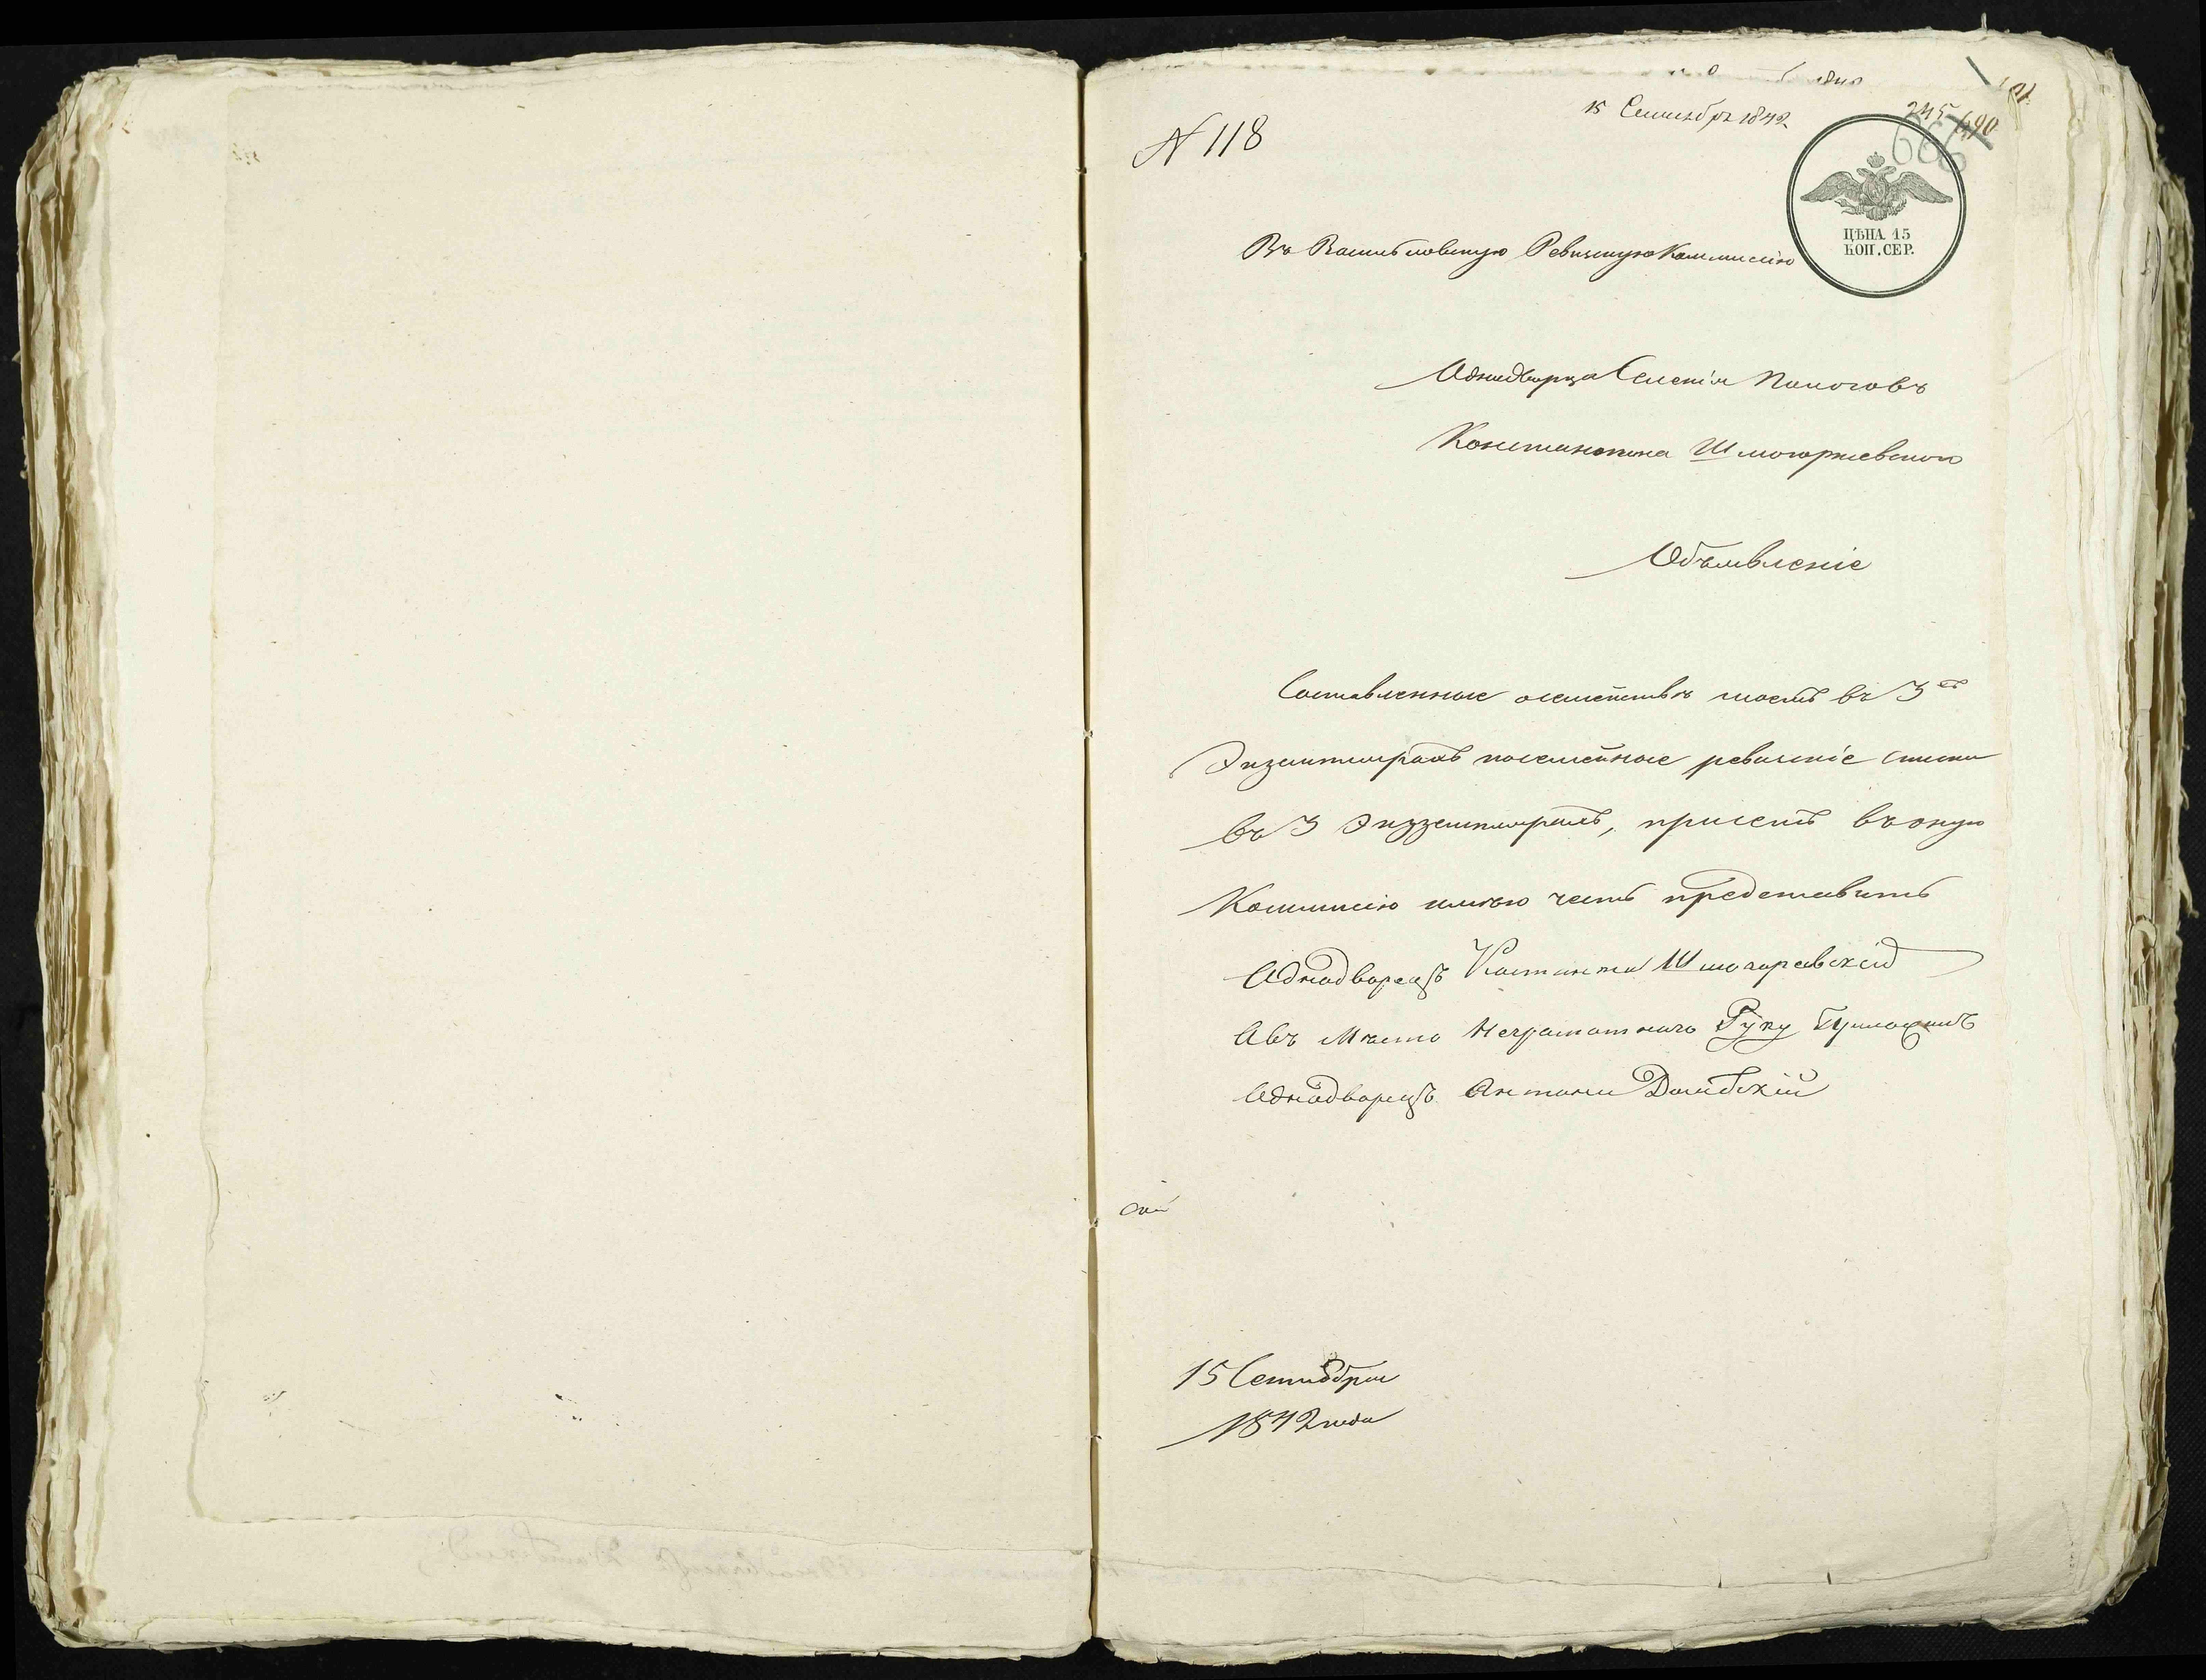 № 118
15 Сентября 1842
245
690
666
ЦѢНА 15
КОП. СЕР.
Въ Васильковскую Ревизскую Коммисію
Однодворца Селенія
Константина Шмогоржевского
Объявленіе
Составленные о семействѣ моемъ въ 3хъ
Экземплярахъ посемейные ревизскіе списки
въ 3 Экзземплярахъ, присемъ въ оную
Коммисію имѣю честь представить
Аднодворецъ Костанти Шмогоревскій
Авъ Мѣсто Неграмотнаго Руку
Аднодворецъ Антони Домбскій
15 Сентября
1842 года